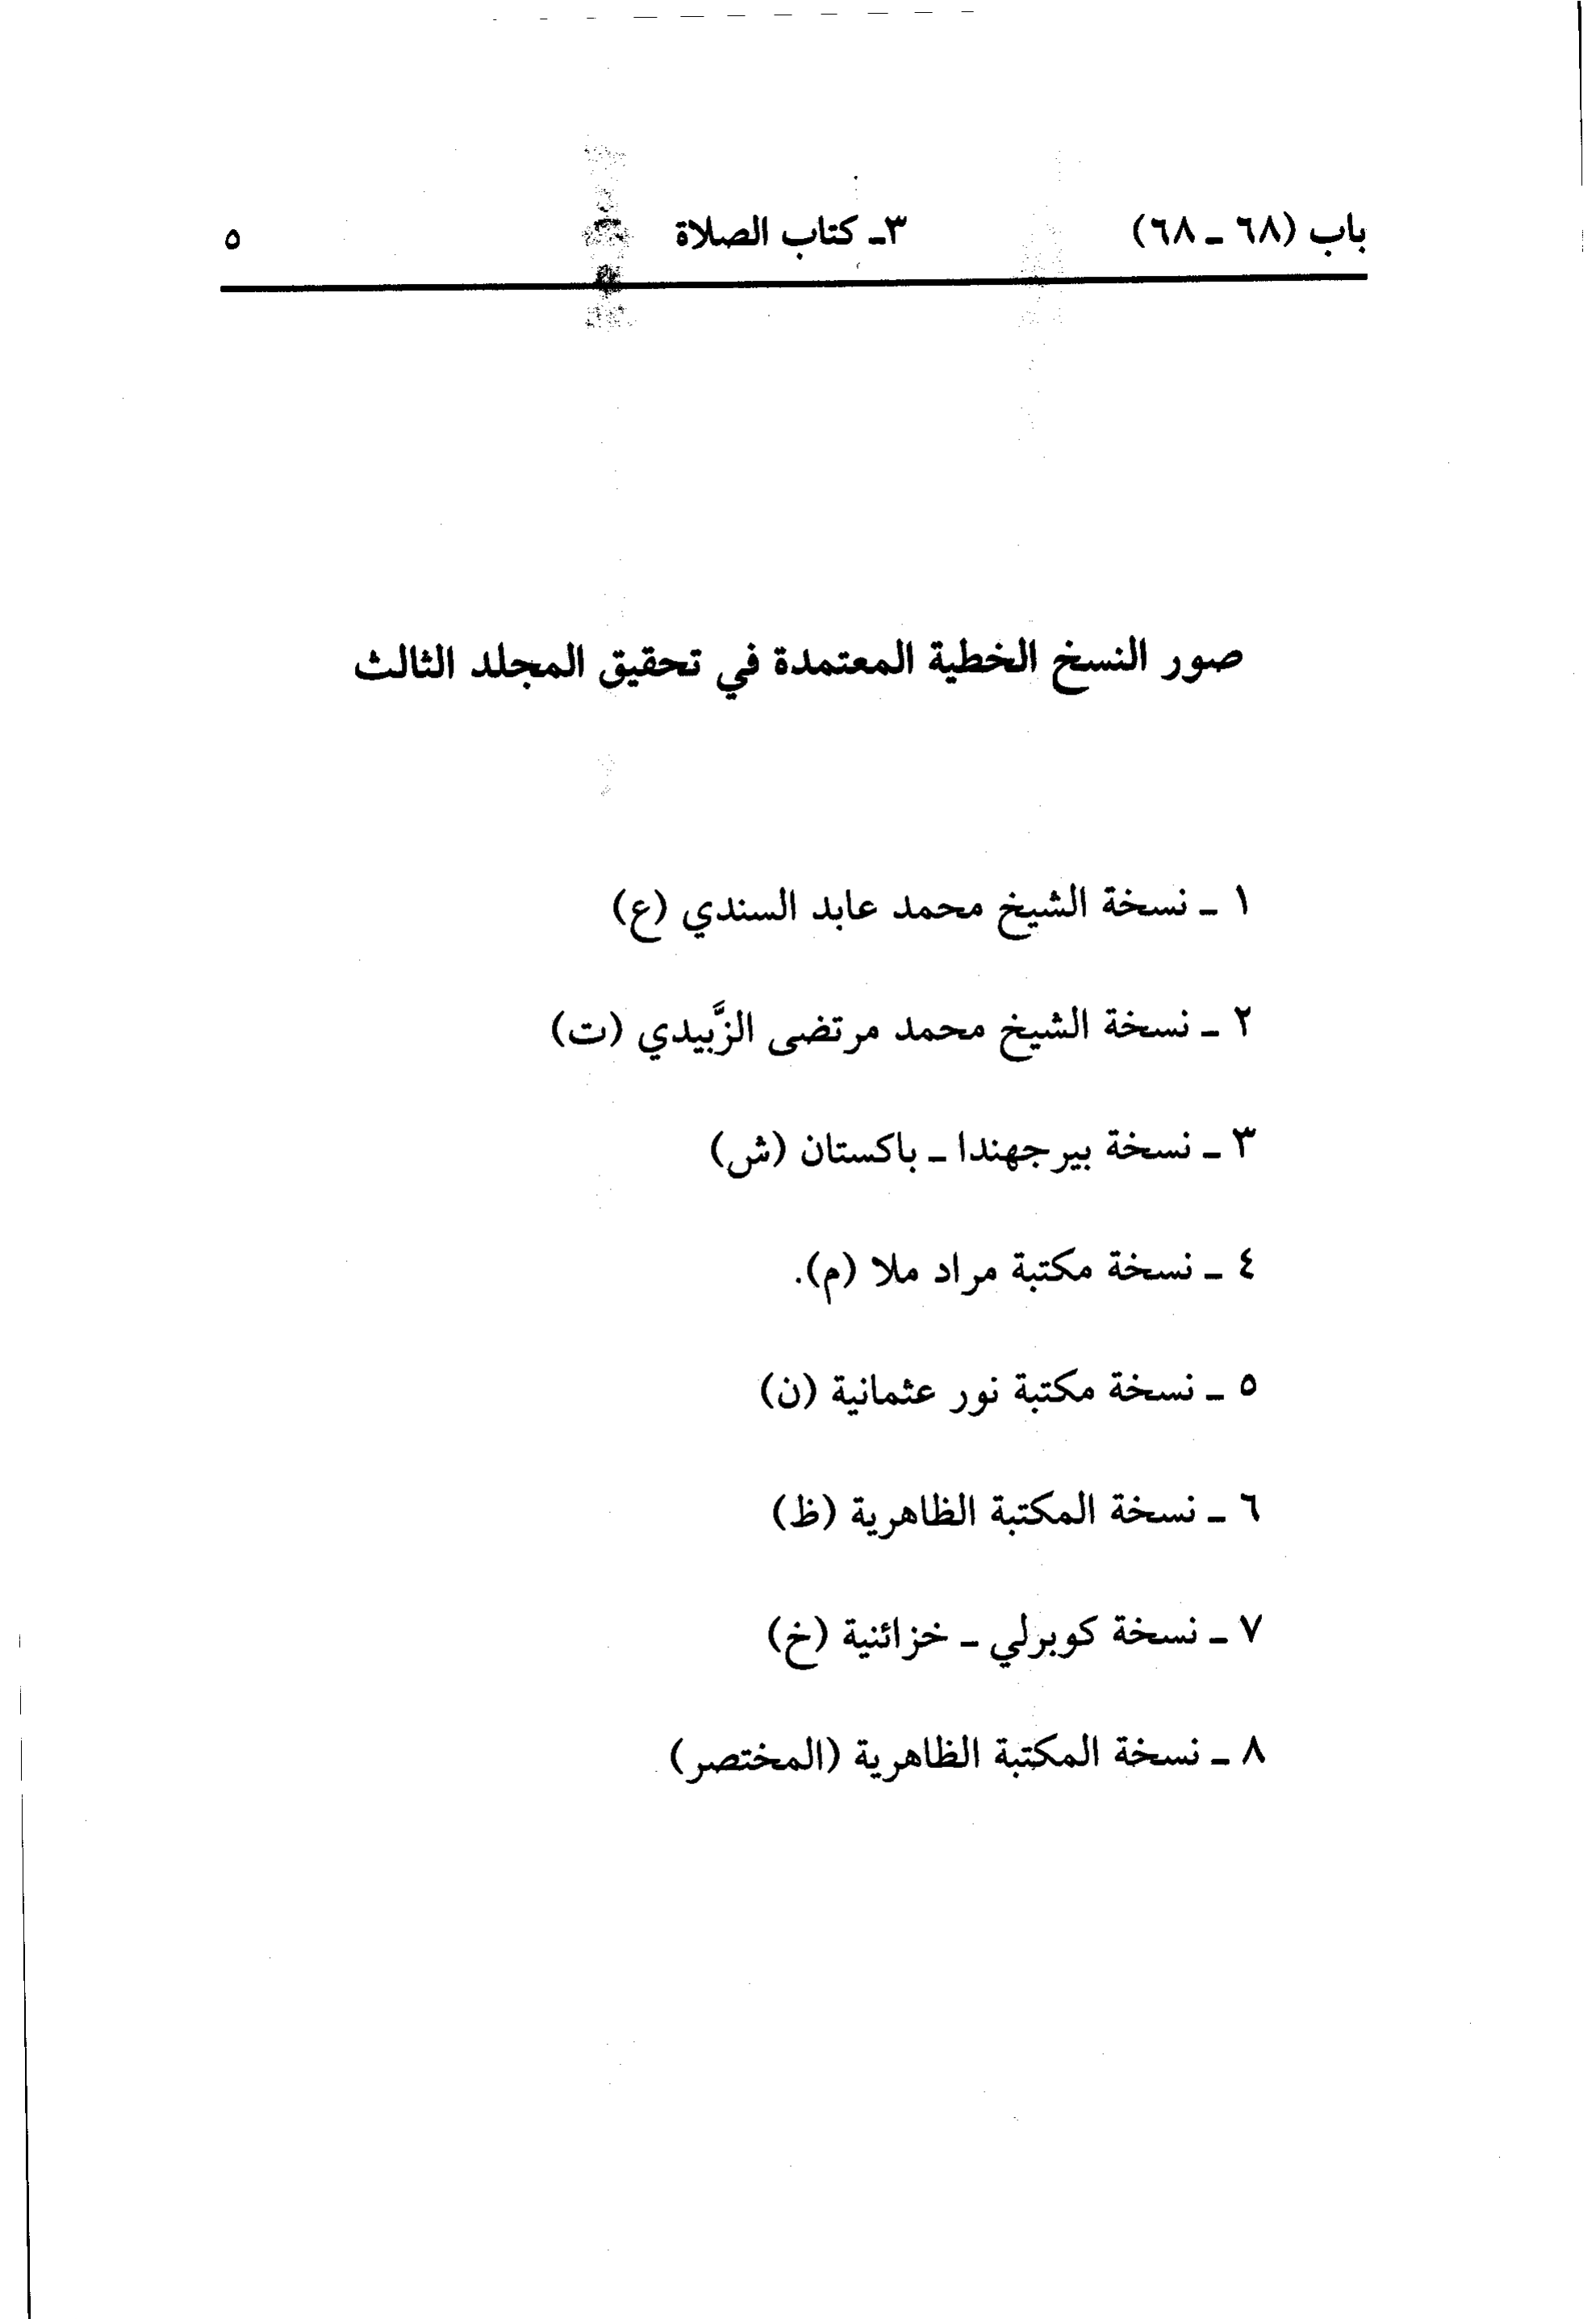 باب (٦٨ ـ ٦٨) ٣ـ كتاب الصلاة ٥
صور النسخ الخطية المعتمدة في تحقيق المجلد الثالث
١ ـ نسخة الشيخ محمد عابد السندي (ع)
٢ ـ نسخة الشيخ محمد مرتضى الزَّبيدي (ت)
٣ ـ نسخة بيرجهندا ـ باكستان (ش)
٤ ـ نسخة مكتبة مراد ملا (م).
٥ ـ نسخة مكتبة نور عثمانية (ن)
٦ ـ نسخة المكتبة الظاهرية (ظ)
٧ ـ نسخة كوبرلي ـ خزائنية (خ)
٨ ـ نسخة المكتبة الظاهرية (المختصر)